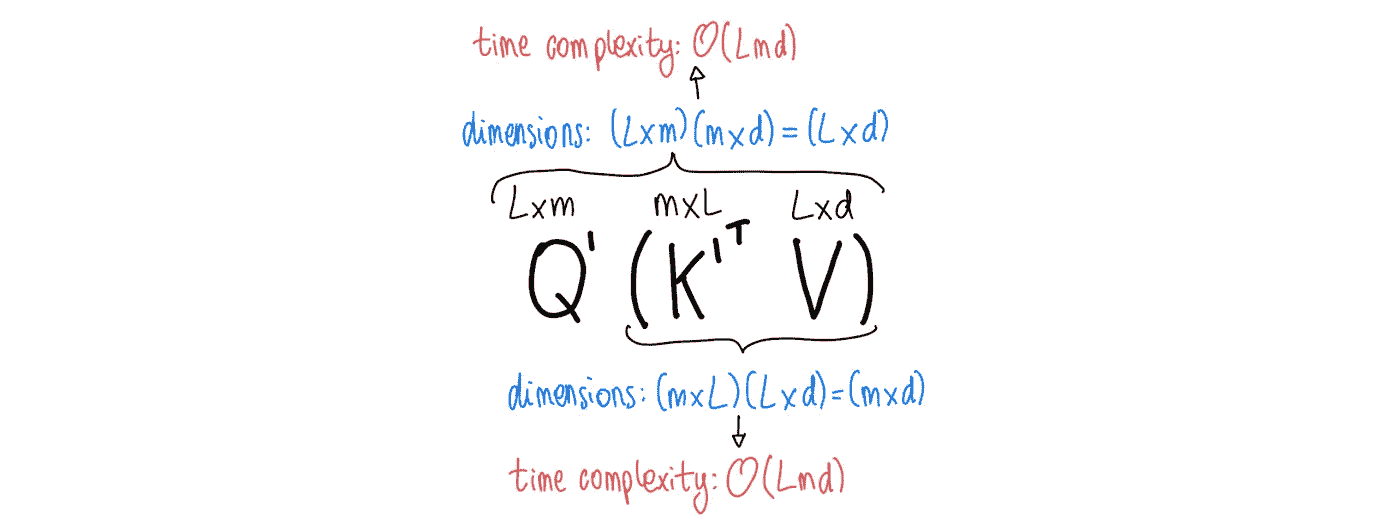 time complexity: O(Lmd)
dimensions: (Lxm)(mxd)=(Lxd)
Lxm mxL Lxd
Q' (K'ᵀ V)
dimensions: (mxL)(Lxd)=(mxd)
time complexity: O(Lmd)